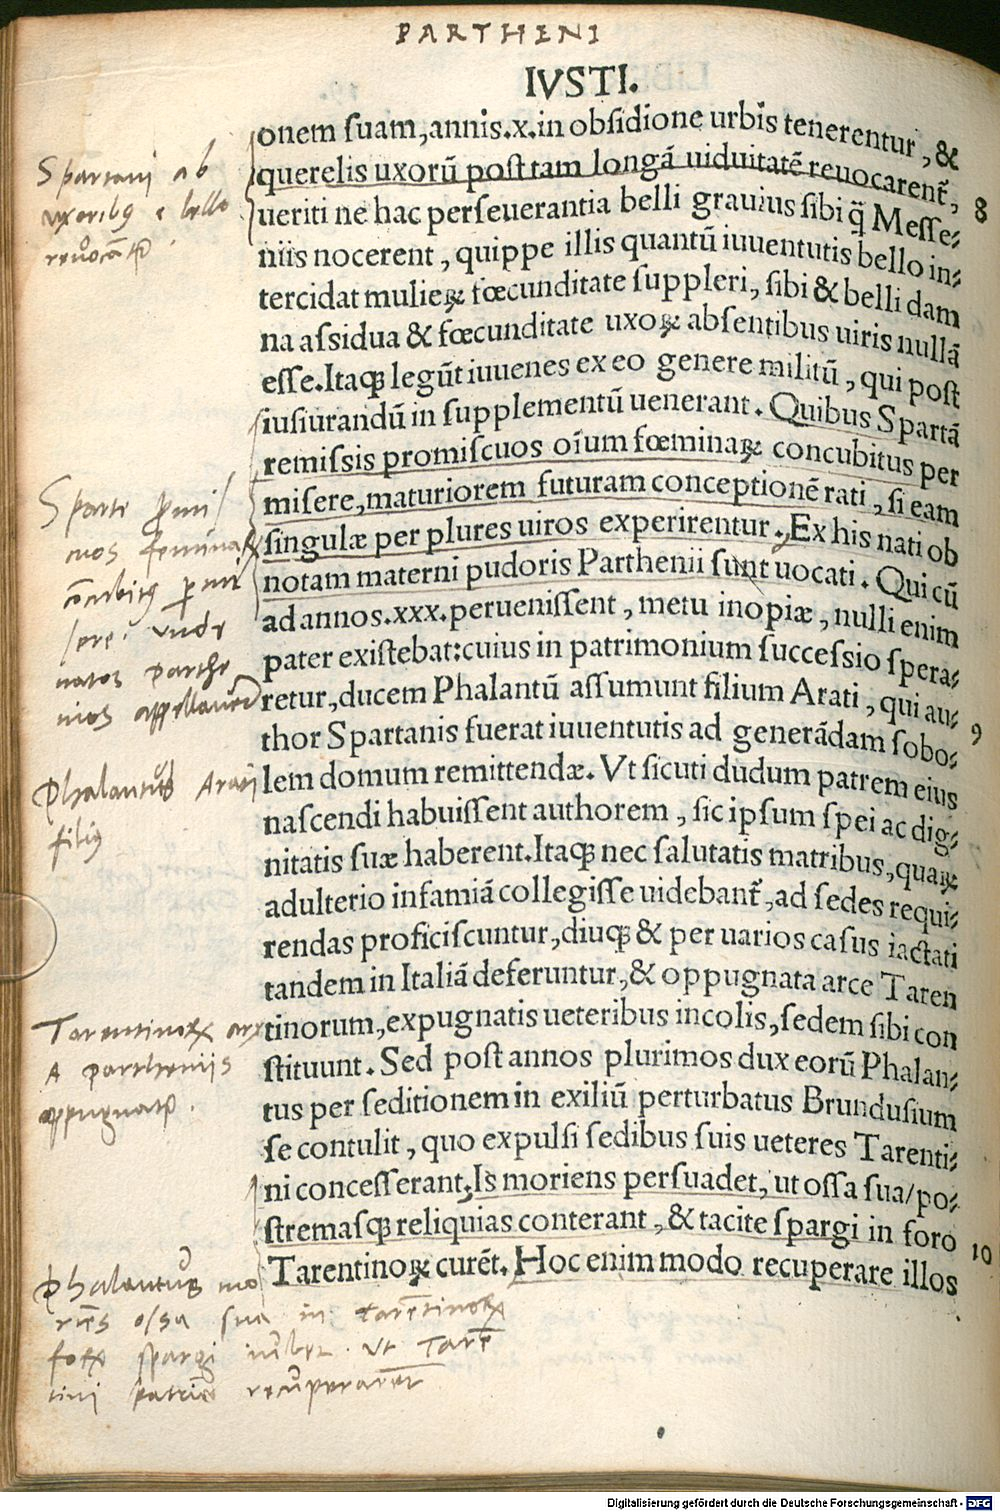 PARTHENI
IVSTI.
onem suam, annis.x.in obsidione urbis tenerentur, &
querelis uxorū post tam longā uiduitatē reuocarent̄,
8
ueriti ne hac perseuerantia belli grauius sibi q̄ Messe-
niis nocerent, quippe illis quantū iuuentutis bello in-
tercidat mulieꝝ fœcunditate suppleri, sibi & belli dam
na assidua & fœcunditate uxoꝝ absentibus uiris nullā
esse. Itaqꝫ legūt iuuenes ex eo genere militū, qui post
iusiurandū in supplementū uenerant. Quibus Spartā
remissis promiscuos oīum fœminaꝝ concubitus per
misere, maturiorem futuram conceptionē rati, si eam
singulæ per plures uiros experirentur. Ex his nati ob
notam materni pudoris Parthenii sunt uocati. Qui cū
ad annos.xxx.peruenissent, metu inopiæ, nulli enim
pater existebat: cuius in patrimonium successio spera-
retur, ducem Phalantū assumunt filium Arati, qui au-
9
thor Spartanis fuerat iuuentutis ad generādam sobo-
lem domum remittendæ. Vt sicuti dudum patrem eius
nascendi habuissent authorem, sic ipsum spei ac dig-
nitatis suæ haberent. Itaqꝫ nec salutatis matribus, quaꝝ
adulterio infamiā collegisse uidebant̄, ad sedes requi-
rendas proficiscuntur, diuqꝫ & per uarios casus iactati
tandem in Italiā deferuntur, & oppugnata arce Taren
tinorum, expugnatis ueteribus incolis, sedem sibi con
stituunt. Sed post annos plurimos dux eorū Phalan-
tus per seditionem in exiliū perturbatus Brundusium
se contulit, quo expulsi sedibus suis ueteres Tarenti-
ni concesserant. Is moriens persuadet, ut ossa sua/po-
stremasqꝫ reliquias conterant, & tacite spargi in foro
10
Tarentinoꝝ curēt. Hoc enim modo recuperare illos
Spartani ab
uxoribꝯ e bello
reuocant᷑
Sparte ꝓmis
cuos feminaꝝ
cōcubitꝯ ꝑmi
sere. vnde
natos parthe
nios appellauerūt
Phalantus Arati
filiꝯ
Tarentinoꝝ arx
A partheniis
oppugnat᷑.
Phalantus mo
riēs ossa sua in tarētinoꝝ
foꝝ spargi iubet. ut Tarē
tini patriā recuperarent
Digitalisierung gefördert durch die Deutsche Forschungsgemeinschaft - DFG